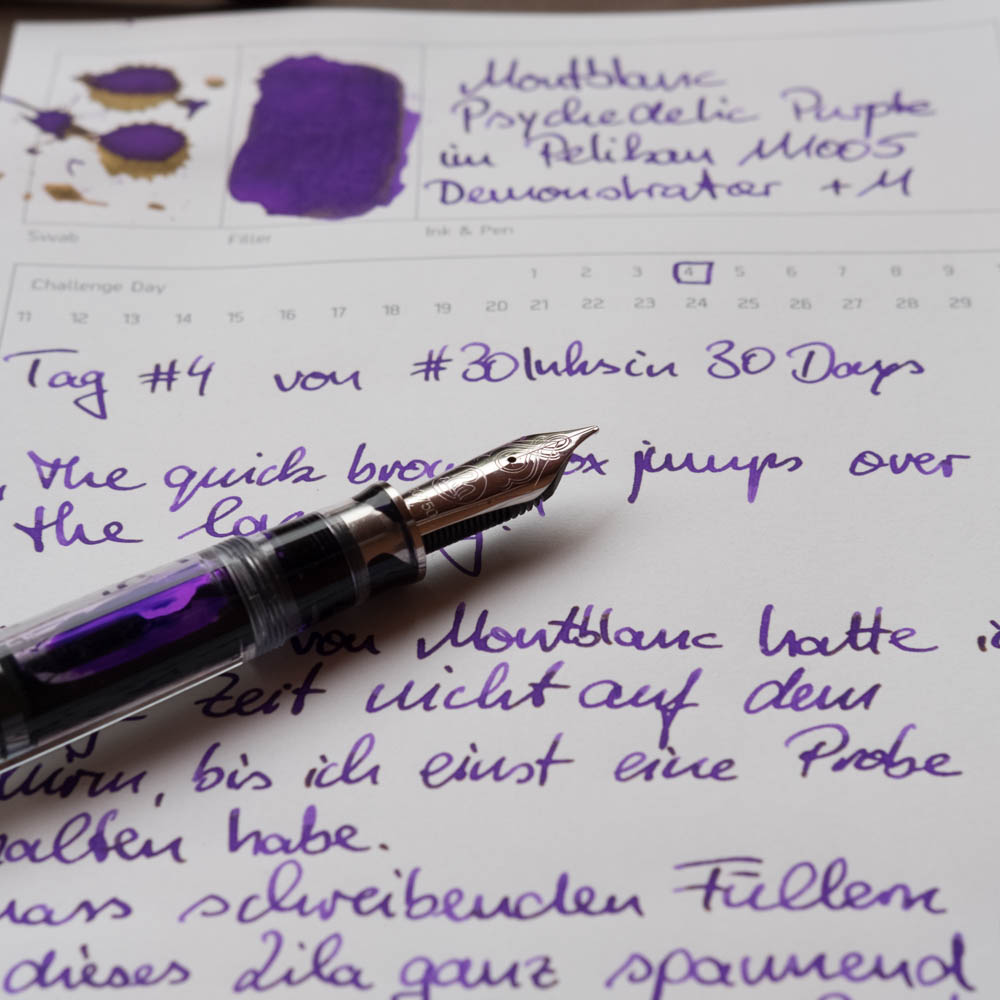 Montblanc
Psychedelic Purple
im Pelikan M1005
Demonstrator + M
Swab
Filler
Ink & Pen
Challenge Day
1 2 3 4 5 6 7 8 9
11 12 13 14 15 16 17 18 19 20 21 22 23 24 25 26 27 28 29
Tag #4 von #30Inksin 30 Days
the quick brow ox jumps over
the la
von Montblanc hatte
Zeit nicht auf dem
bis ich einst eine Probe
alten habe.
nass schreibenden Füllern
dieses Lila ganz spannend